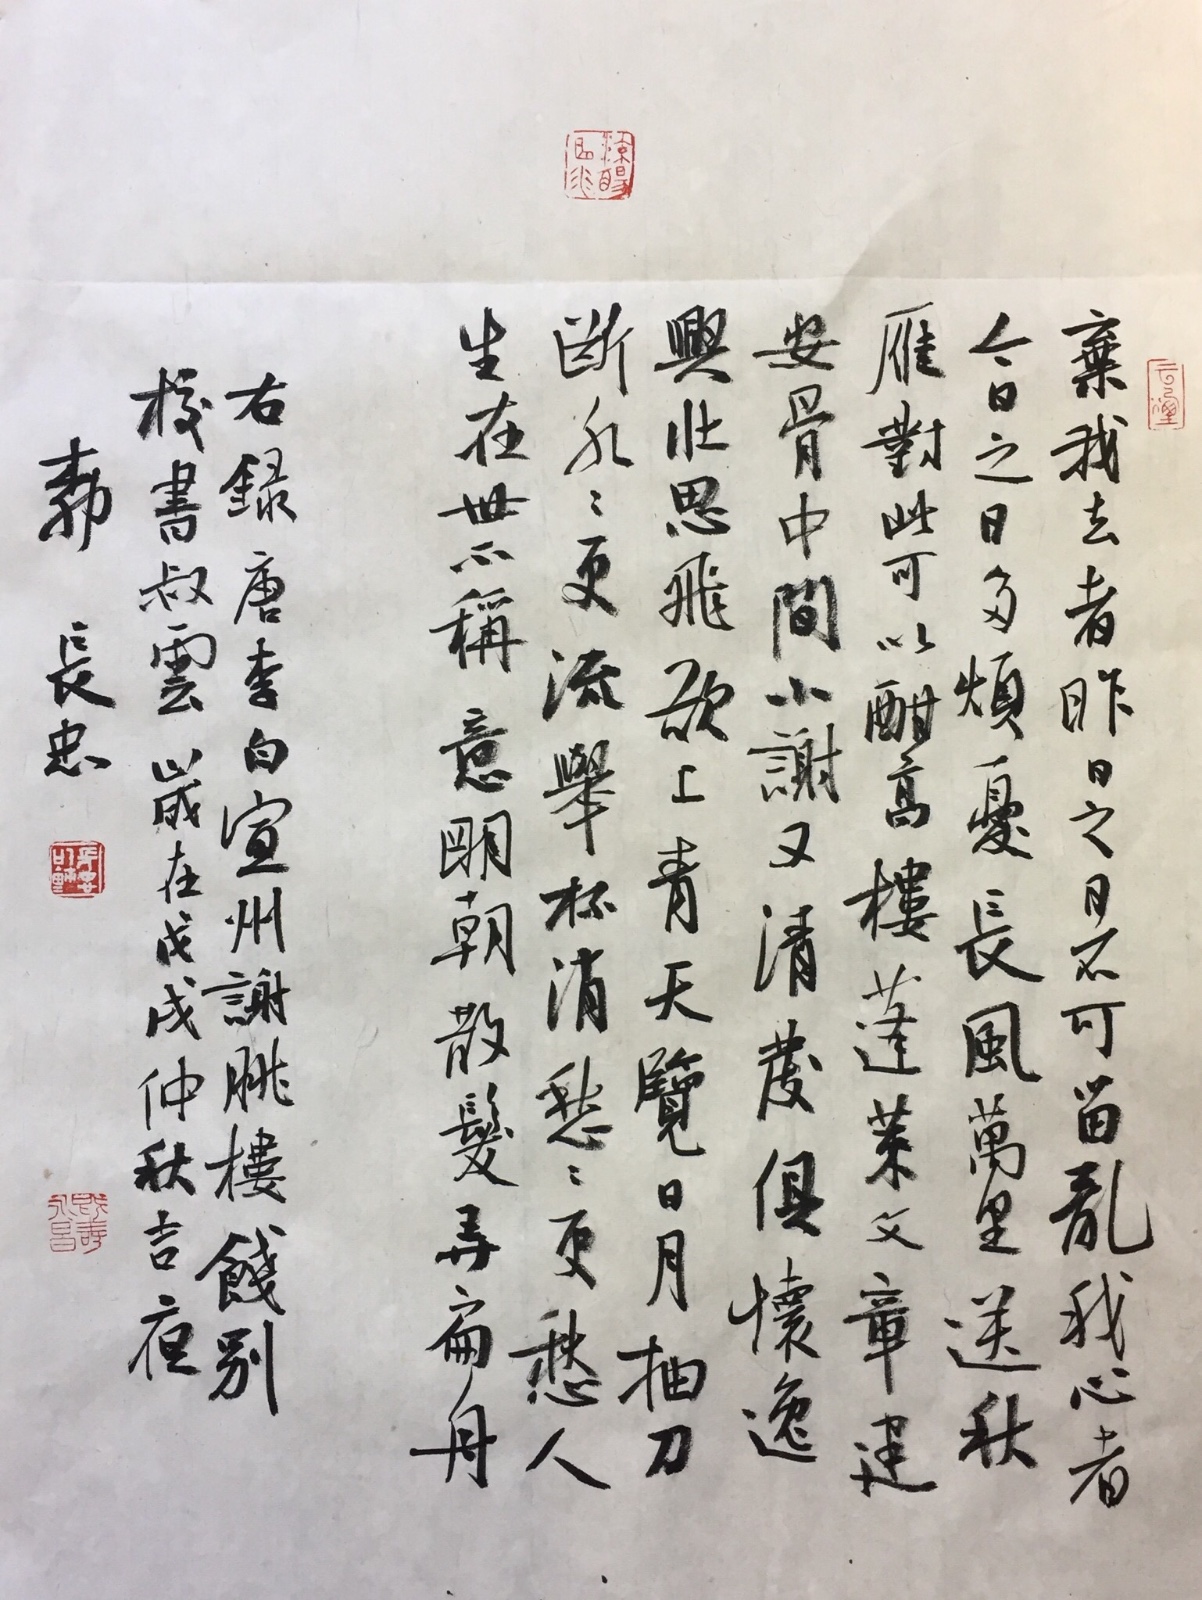 棄我去者昨日之日不可留亂我心者
今日之日多煩憂長風萬里送秋
雁對此可以酣高樓蓬萊文章建
安骨中間小謝又清發俱懷逸
興壯思飛欲上青天覽日月抽刀
斷水々更流舉杯消愁々更愁人
生在世不稱意明朝散髮弄扁舟
右錄唐李白宣州謝朓樓餞別
校書叔雲歲在戊戌仲秋吉夜
長忠